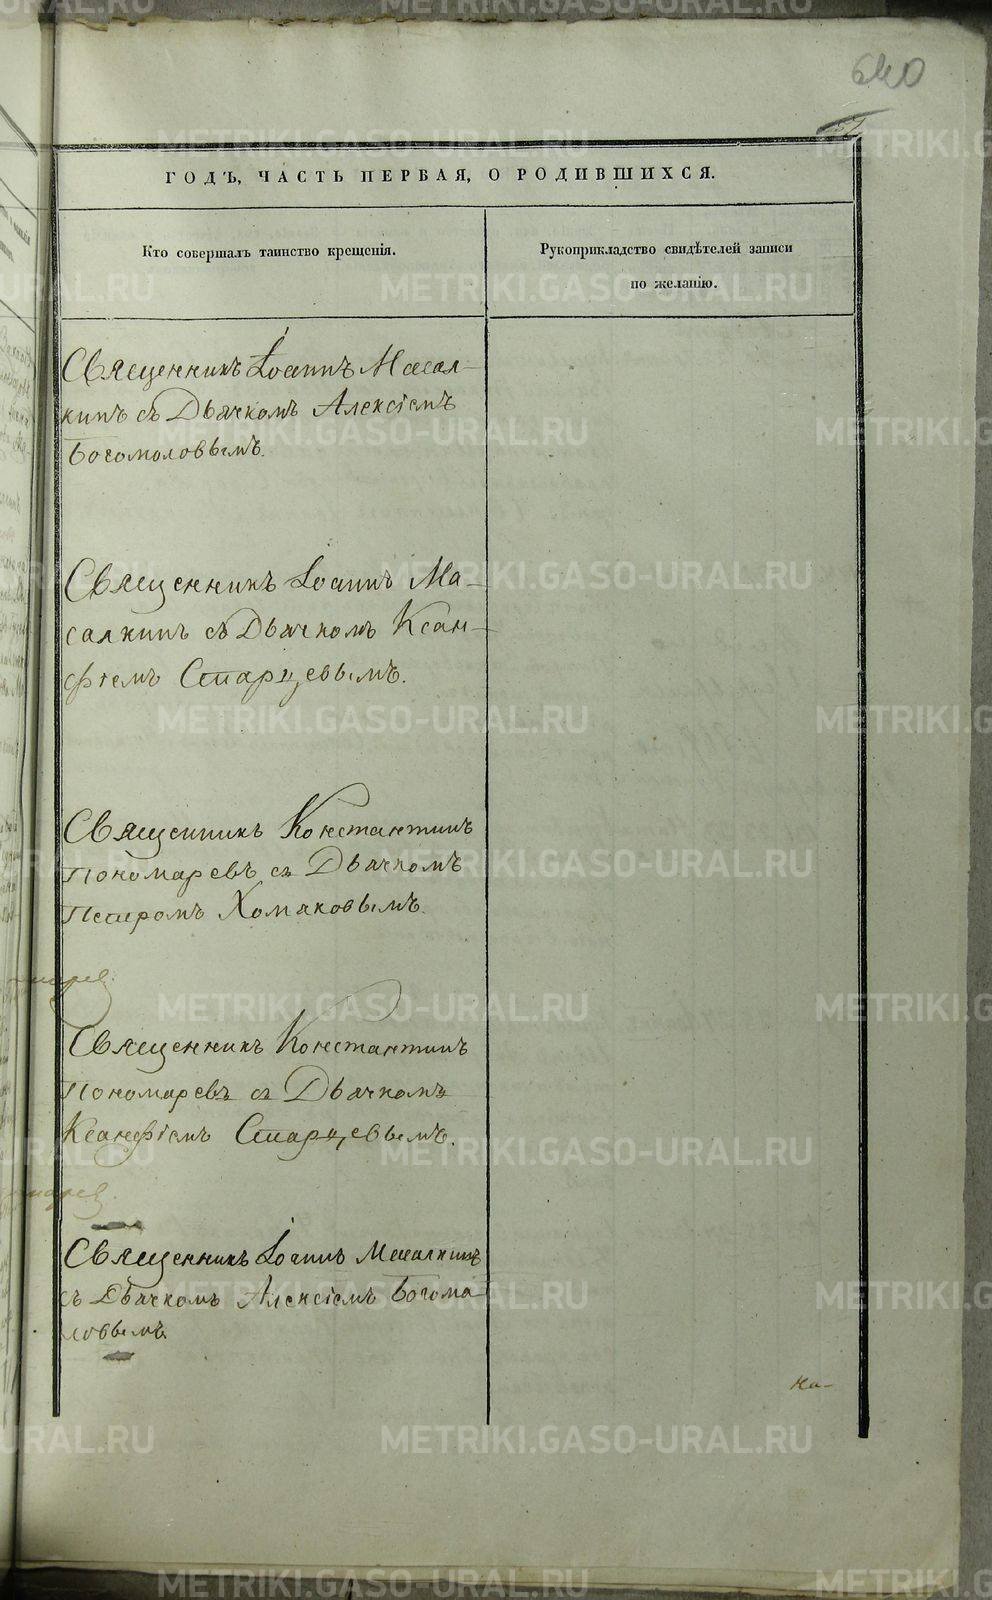 640
ГОДЪ, ЧАСТЬ ПЕРВАЯ, О РОДИВШИХСЯ.
Кто совершалъ таинство крещенія.
Рукоприкладство свидѣтелей записи
по желанію.
Священникъ Іоаннъ Масал-
кинъ съ Дьячкомъ Алексіемъ
Богомоловымъ.
Священникъ Іоаннъ Ма-
салкинъ съ Дьячкомъ Ксан-
фіемъ Старцевымъ.
Священникъ Константинъ
Пономаревъ съ Дьячкомъ
Петромъ Хомяковымъ.
Священникъ Константинъ
Пономаревъ съ Дьячкомъ
Ксанфіемъ Старцевымъ.
Священникъ Іоаннъ Масалкинъ
съ Дьячкомъ Алексіемъ Богомо-
ловымъ.
на-
METRIKI.GASO-URAL.RU